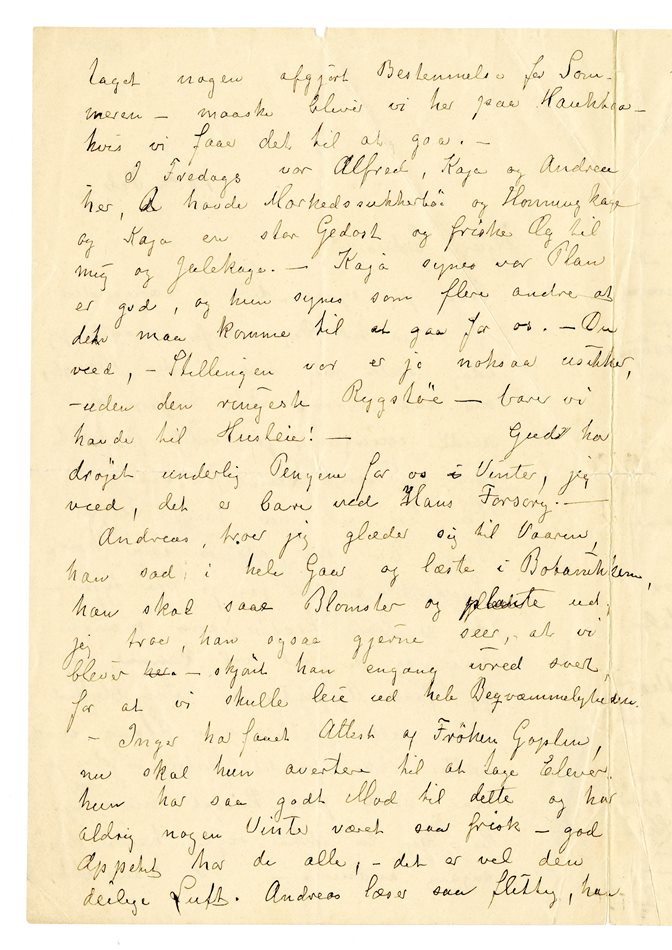 taget nogen afgjört Bestemmelse for Som-
meren – maaske bliver vi her paa Haukeraa –
hvis vi faaer det til at gaa. –
I Fredags var Alfred, Kaja og Andrea
her, A havde Markedssukkertöi og Honningkage
og Kaja en stor Gedost og friske Æg til
mig og Julekage. – Kaja synes vor Plan
er god, og hun synes som flere andre at
det maa komme til at gaa for os. – Du
veed, – Stillingen vor er jo noksaa usikker,
– uden den ringeste Rygstöe – bare vi
havde til Husleie! – Gud har
dröjet underlig Pengene for os i Vinter, jeg
veed, det er bare ved Hans Forsorg. –
Andreas, troer jeg glæder sig til Vaaren,
han sad i hele Gaar og læste i Botanikken,
han skal saae Blomster og plante ud,
jeg troer, han ogsaa gjerne seer, at vi
blever – skjönt han engang ivred svert,
for at vi skulle leie ud hele Beqvæmmeligheden.
– Inger har faaet Attest af Fröken Goplen,
nu skal hun avertere til at tage Elever.
hun har saa godt Mod til dette og har
aldrig nogen Vinter været saa frisk – god
Appetit har de alle, – det er vel den
deilige Luft. Andreas læser saa flittig, han